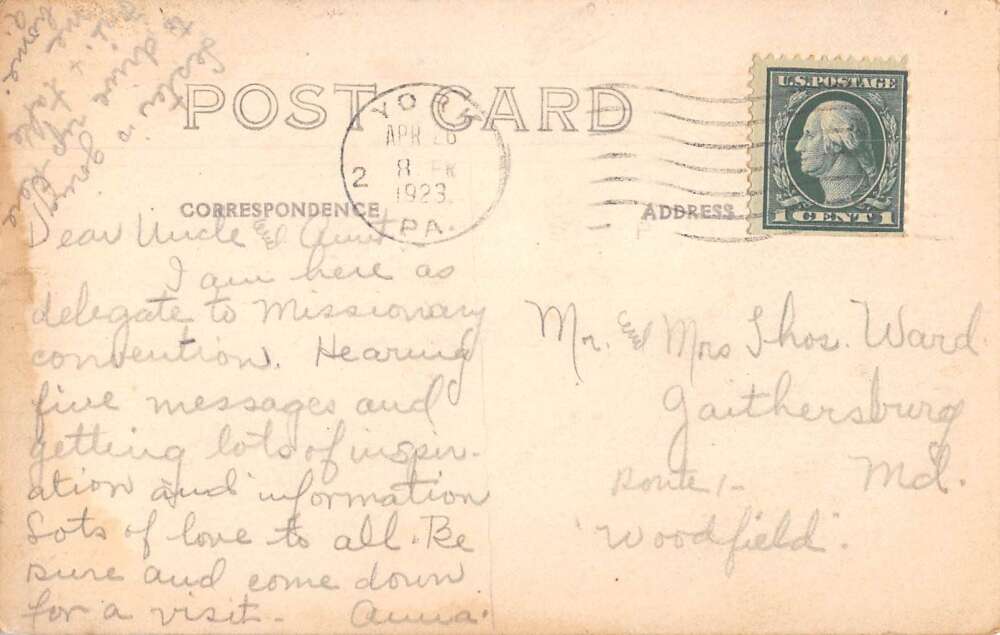 POST CARD
YORK
APR 26
8 PM
1923
2
PA.
U.S. POSTAGE
1 CENT 1
CORRESPONDENCE
ADDRESS
Dear Uncle and Aunt,
I am here as
delegate to Missionary
convention. Hearing
fine messages and
getting lots of inspir-
ation and information
Lots of love to all. Be
sure and come down
for a visit - Anna.
Mr. and Mrs Thos. Ward
Gaithersburg
Md.
Route 1-
"Woodfield".
going
to drive
home.